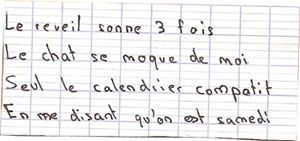 Le reveil sonne 3 fois
Le chat se moque de moi
Seul le calendrier compatit
En me disant qu'on est samedi